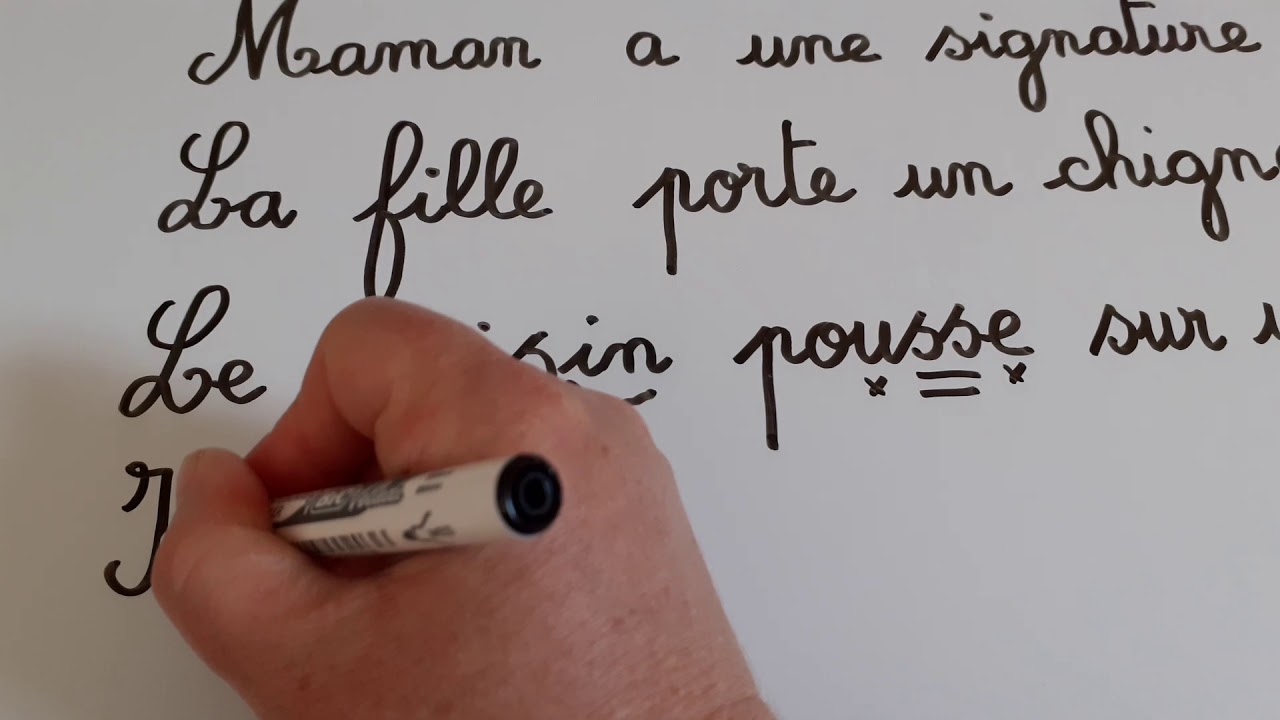 Maman a une signature
La fille porte un
Le pousse sur